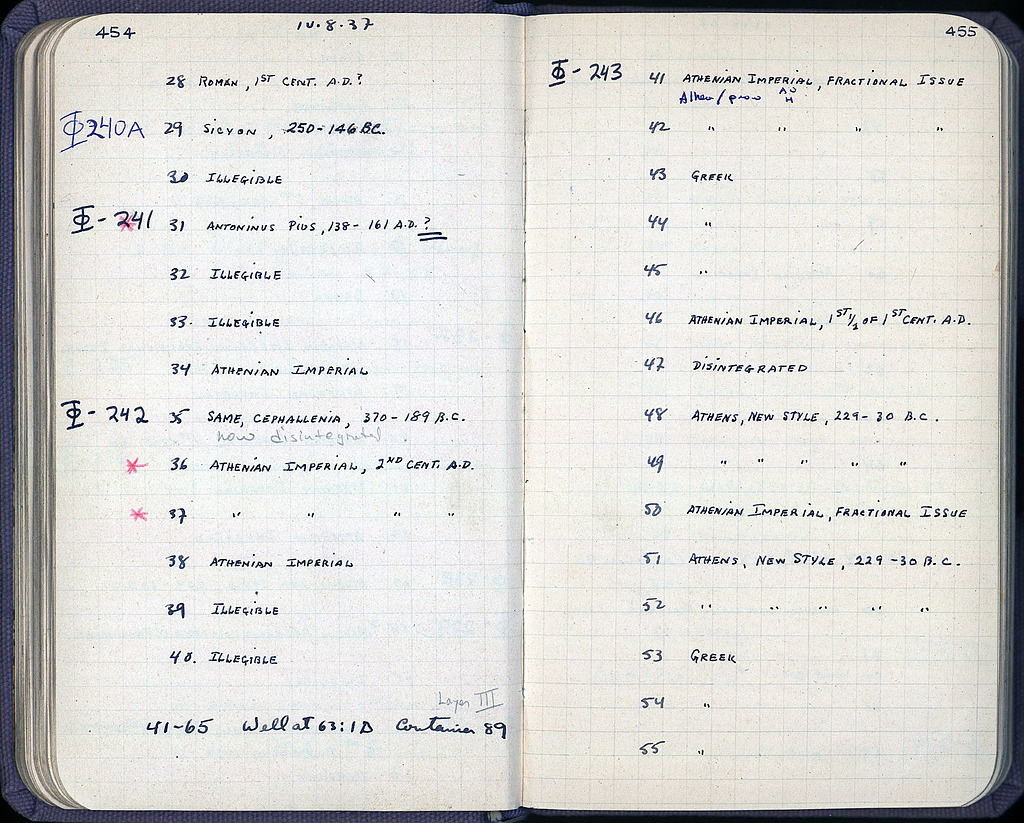 454
10.8.37
28 ROMAN, 1ST CENT. A.D.?
Φ240A 29 SICYON, 250-146 BC.
30 ILLEGIBLE
Φ-241 * 31 ANTONINUS PIUS, 138-161 A.D.?
32 ILLEGIBLE
33. ILLEGIBLE
34 ATHENIAN IMPERIAL
Φ-242 35 SAME, CEPHALLENIA, 370-189 B.C.
now disintegrated
* 36 ATHENIAN IMPERIAL, 2ND CENT. A.D.
* 37 " " " "
38 ATHENIAN IMPERIAL
39 ILLEGIBLE
40. ILLEGIBLE
Layer III
41-65 Well at 63:1D Container 89
455
Φ-243 41 ATHENIAN IMPERIAL, FRACTIONAL ISSUE
Athen/prow
42 " " " "
43 GREEK
44 "
45 "
46 ATHENIAN IMPERIAL, 1ST 1/2 OF 1ST CENT. A.D.
47 DISINTEGRATED
48 ATHENS, NEW STYLE, 229-30 B.C.
49 " " " " "
50 ATHENIAN IMPERIAL, FRACTIONAL ISSUE
51 ATHENS, NEW STYLE, 229-30 B.C.
52 " " " " "
53 GREEK
54 "
55 "